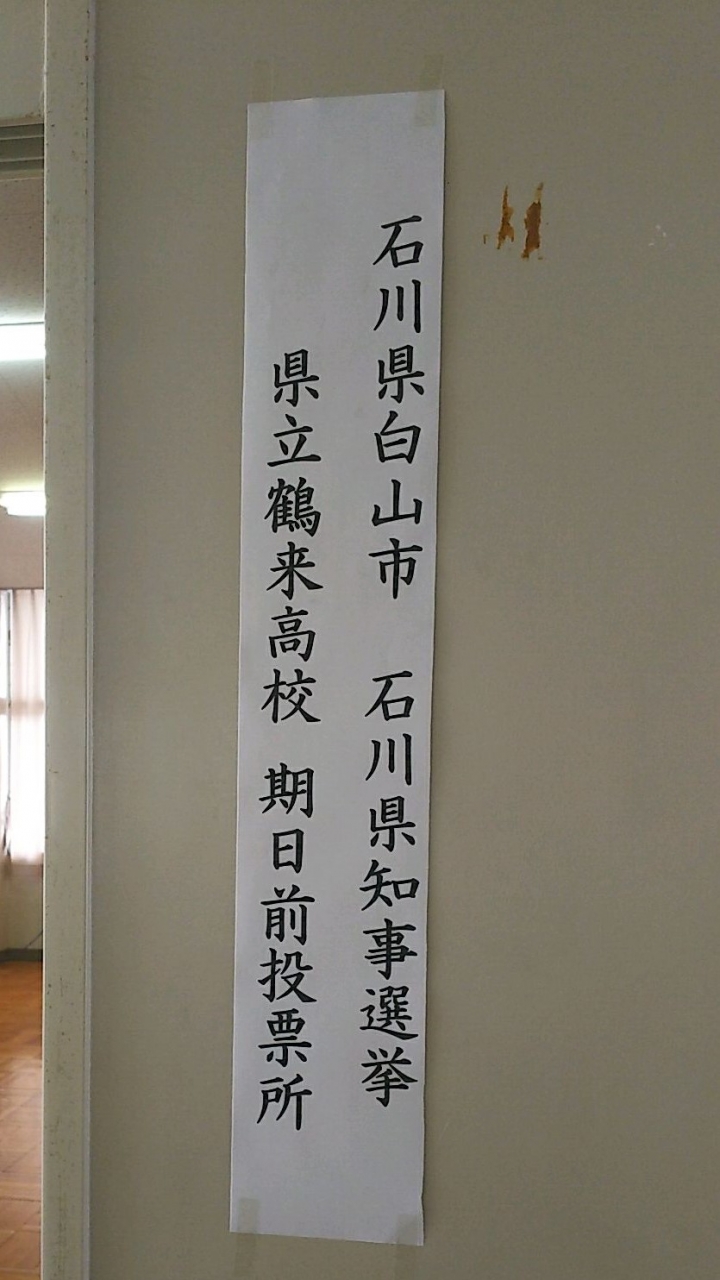 石川県白山市　石川県知事選挙
県立鶴来高校　期日前投票所